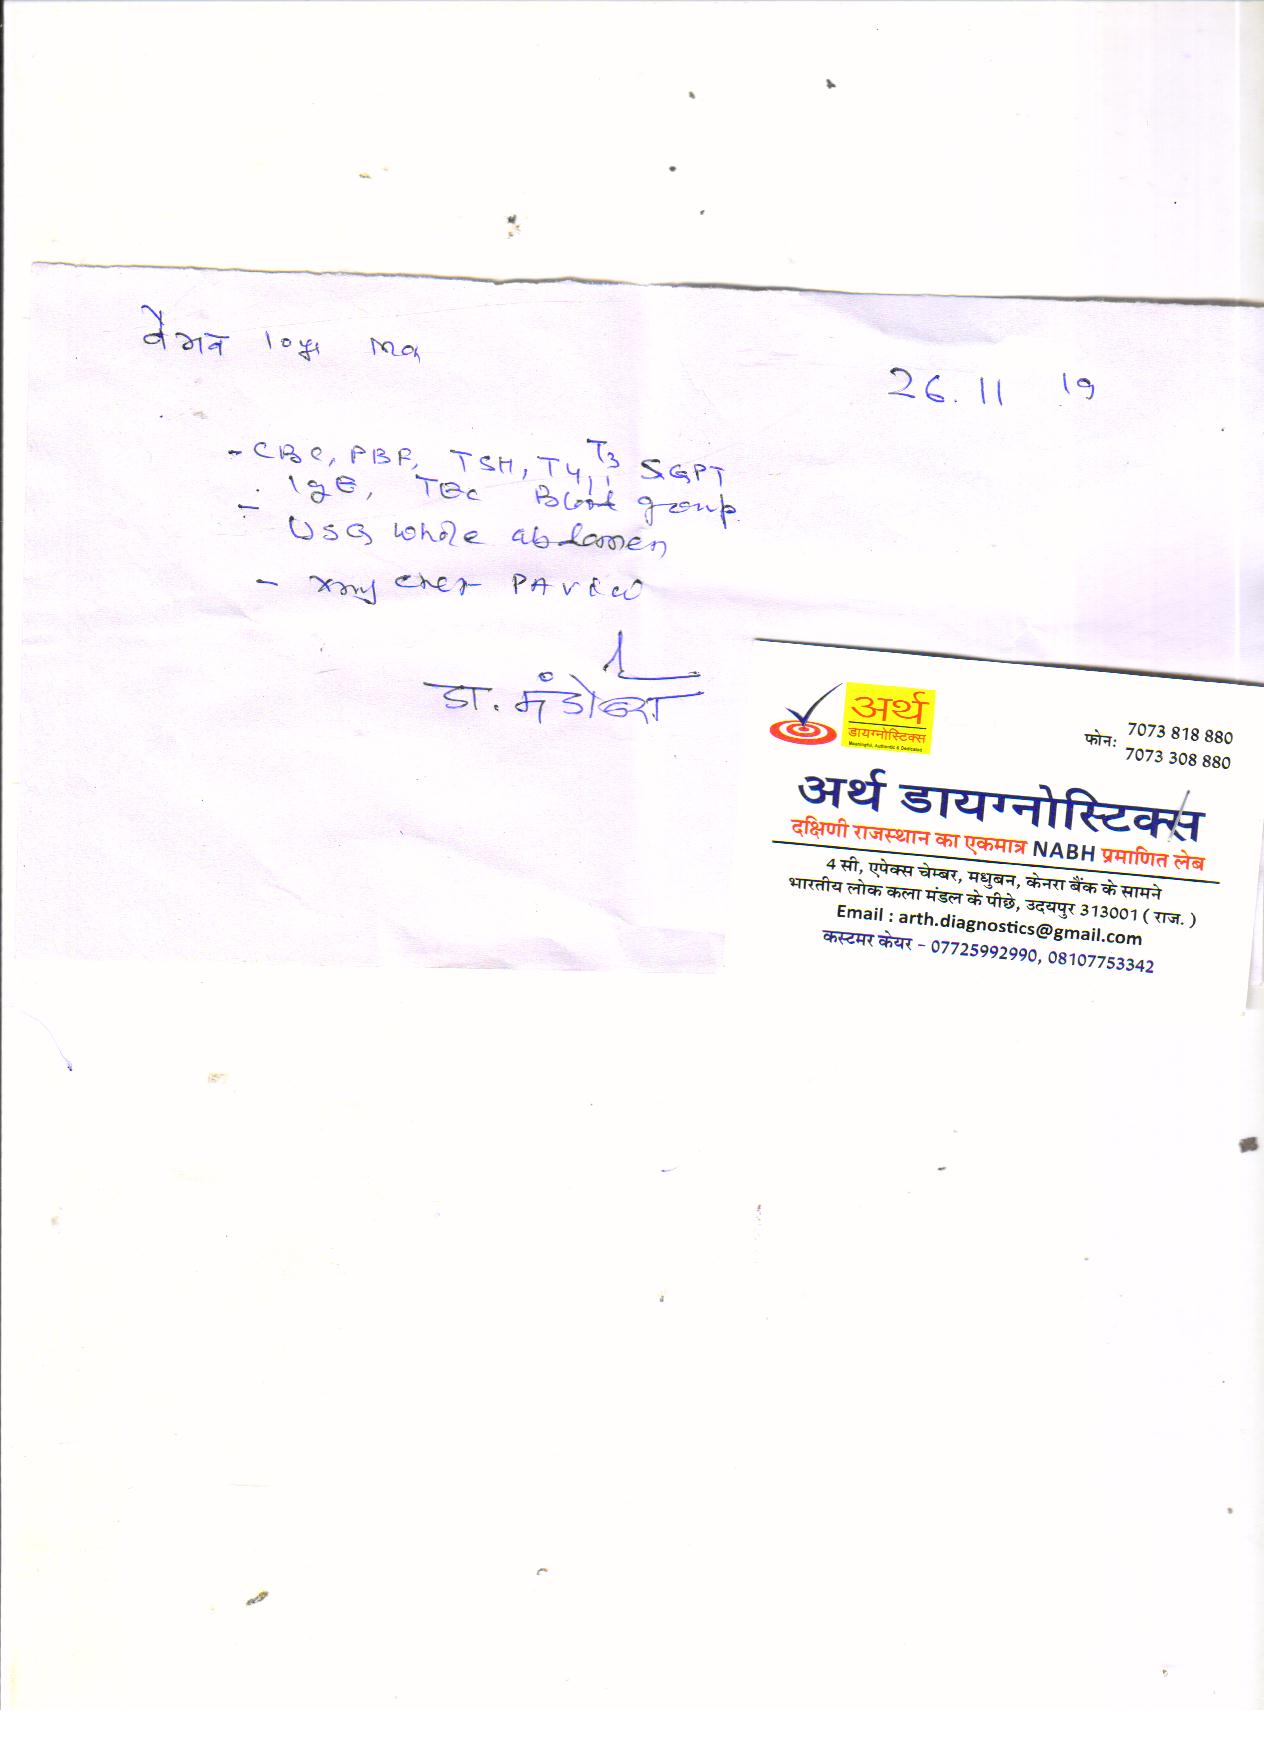 वैभव 10 yr
26.11 19
- CBC, PBF, TSH, T4, T3 SGPT
IgE, TEC Blood group
- USG whole abdomen
- xray chest PA view
डा. मंडोवरा
अर्थ
डायग्नोस्टिक्स
Meaningful, Authentic & Dedicated
फोन: 7073 818 880
7073 308 880
अर्थ डायग्नोस्टिक्स
दक्षिणी राजस्थान का एकमात्र NABH प्रमाणित लेब
4 सी, एपेक्स चेम्बर, मधुबन, केनरा बैंक के सामने
भारतीय लोक कला मंडल के पीछे, उदयपुर 313001 ( राज. )
Email : arth.diagnostics@gmail.com
कस्टमर केयर – 07725992990, 08107753342